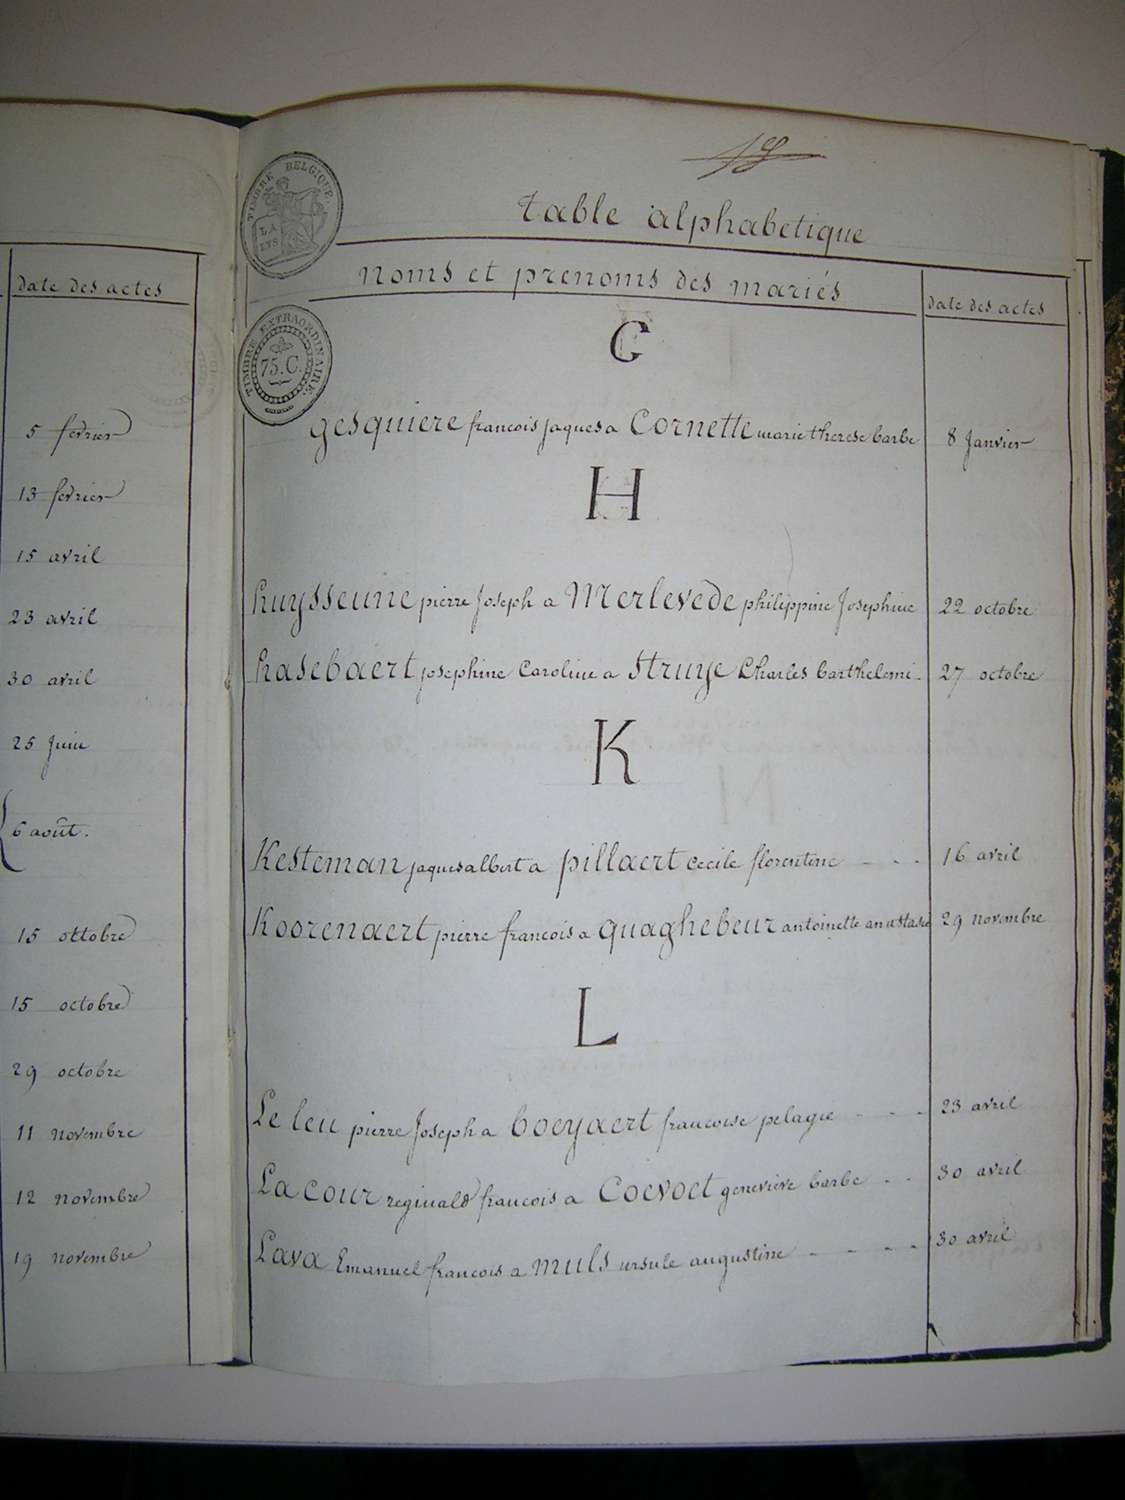 date des actes
5 fevrier
13 fevrier
15 avril
23 avril
30 avril
25 Juin
6 août.
15 octobre
15 octobre
29 octobre
11 novembre
12 novembre
19 novembre
TIMBRE BELGIQUE
LA
LYS
TIMBRE EXTRAORDINAIRE.
75.C.
table alphabetique
noms et prenoms des mariés
date des actes
G
gesquiere francois jaques a Cornette marie therese barbe 8 Janvier
H
huysseune pierre Joseph a Merlevede philippine Josephine 22 octobre
hasebaert josephine Caroline a Struye Charles barthelemi 27 octobre
K
Kesteman jaques albert a pillaert cecile florentine 16 avril
Koorenaert pierre francois a quaghebeur antoinette anastasie 29 novembre
L
Le leu pierre Joseph a boeyaert francoise pelagie 23 avril
La cour reginald francois a Coevoet genevieve barbe 30 avril
Lava Emanuel francois a muls ursule augustine 30 avril